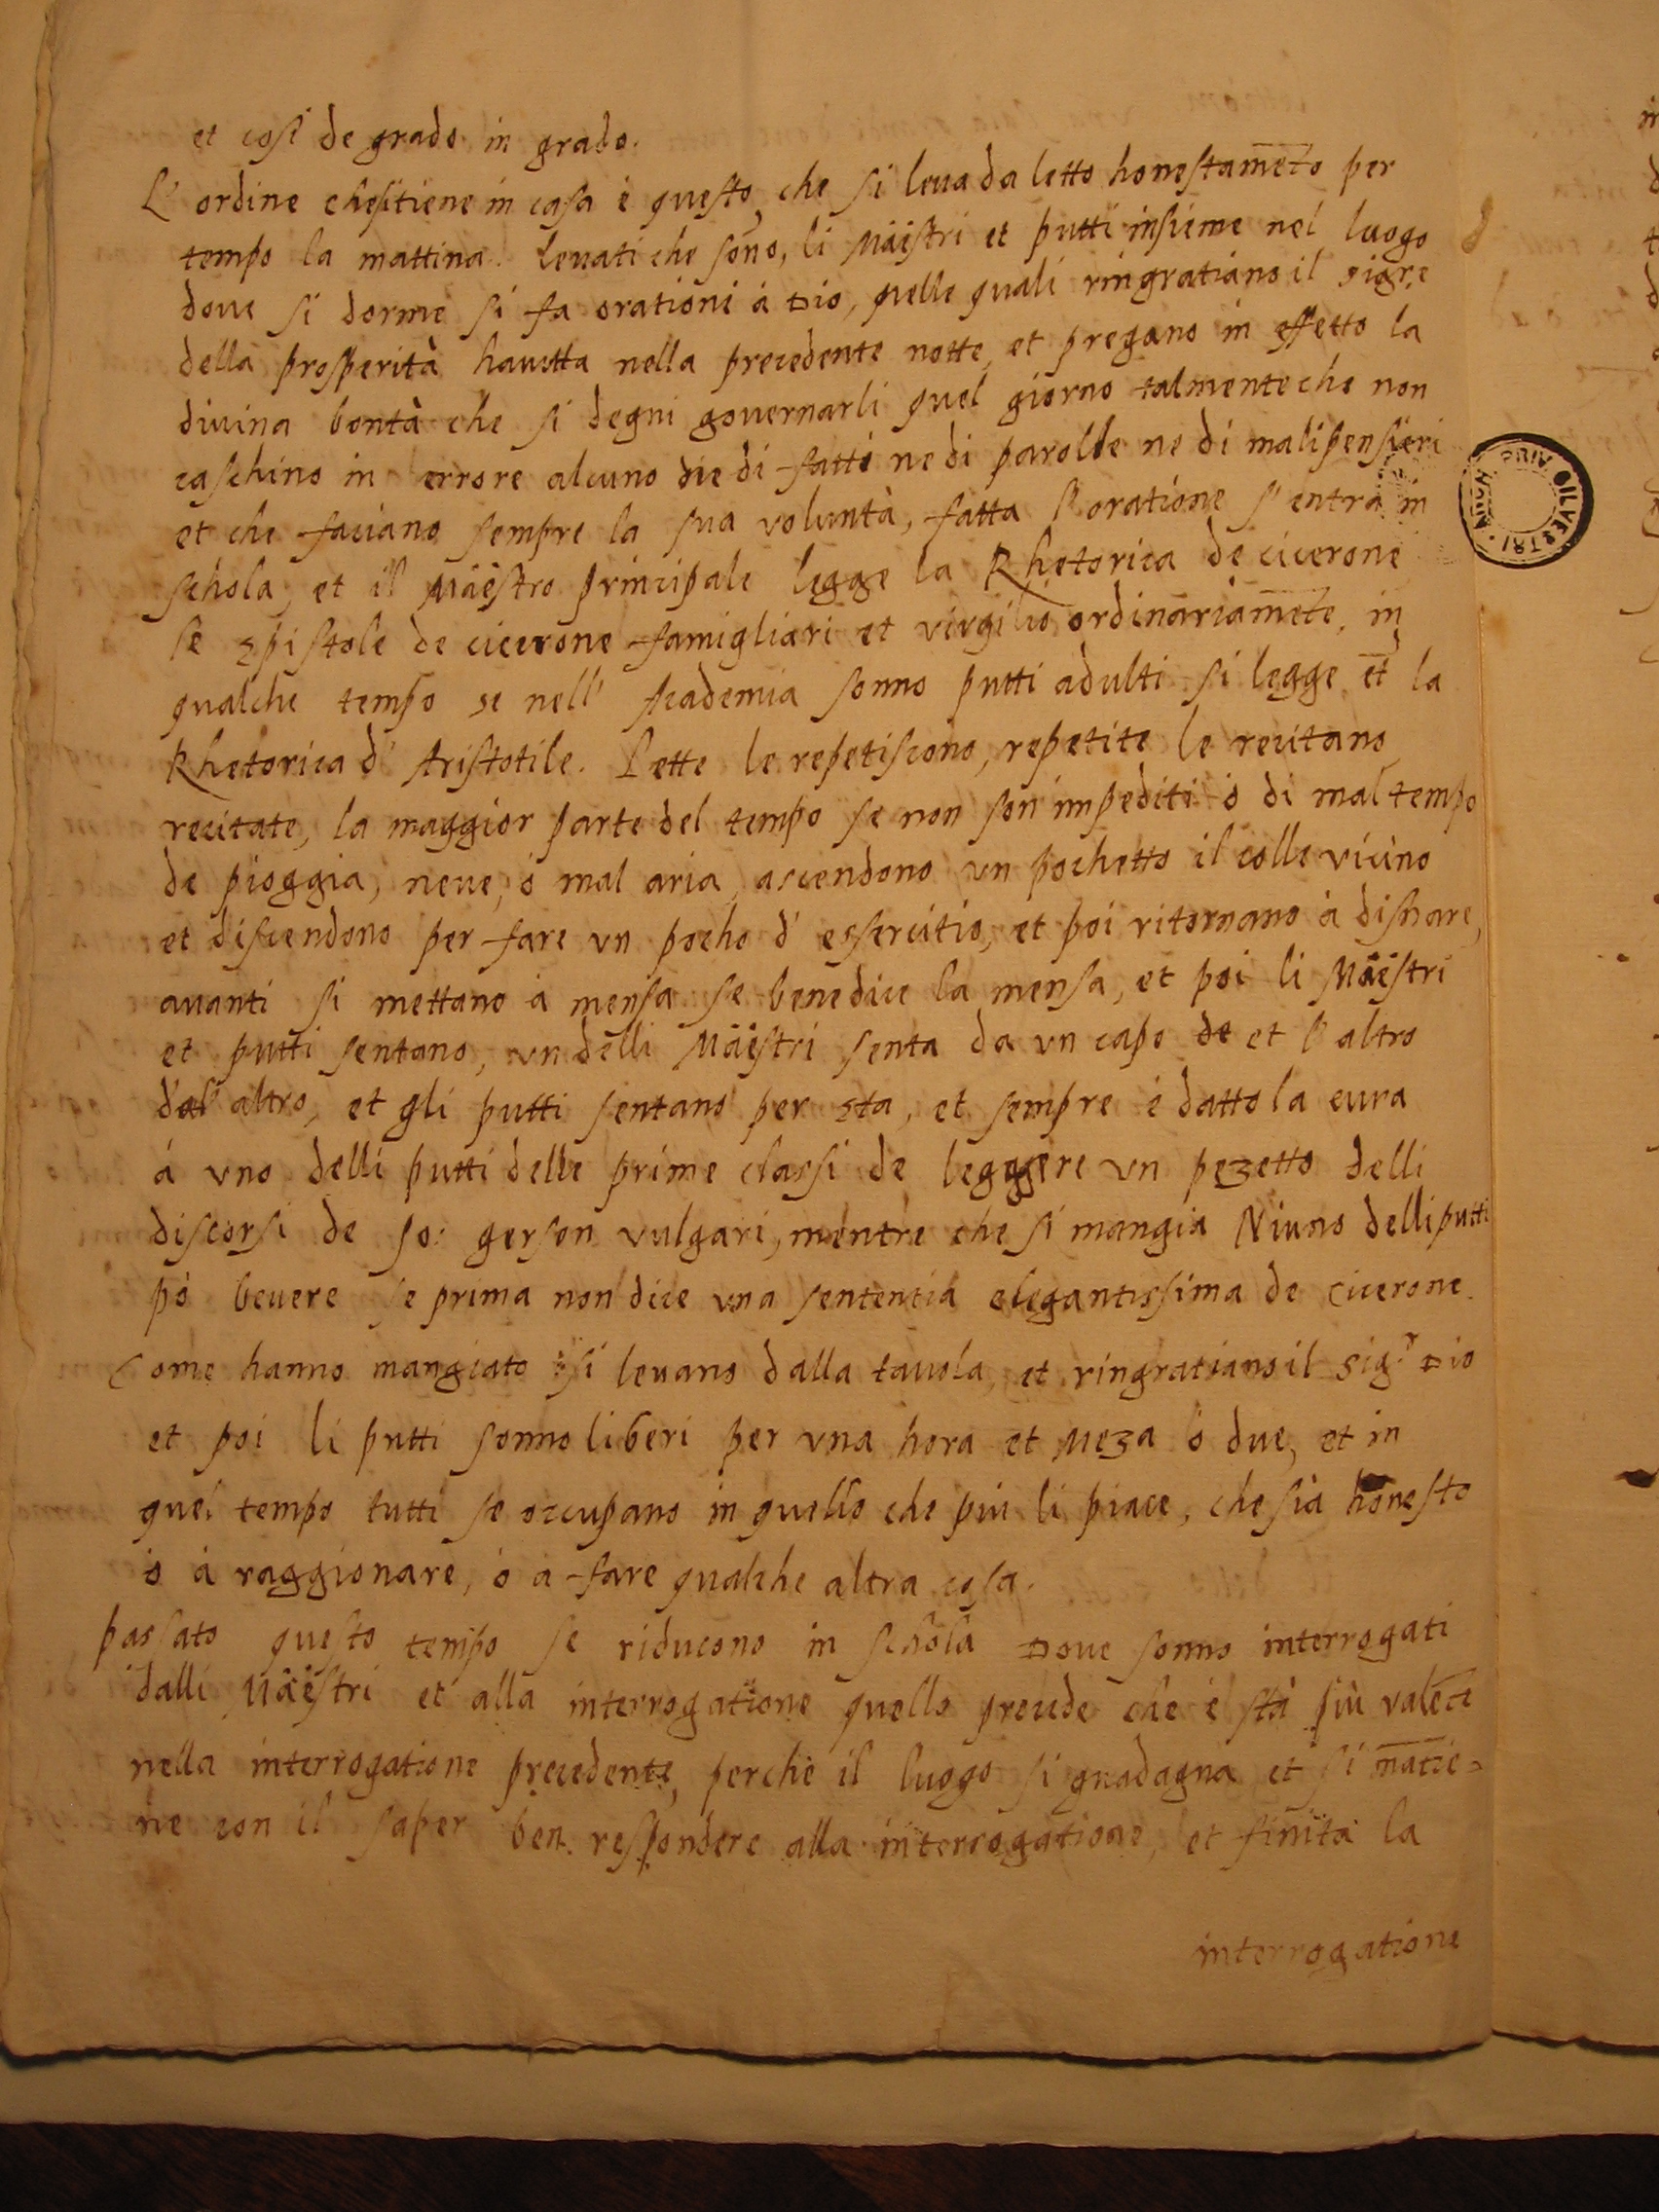 et così de grado in grado.
L'ordine che si tiene in casa è questo, che si leva da letto honestamēto per
tempo la mattina. levati che sono, li Maestri et putti insieme nel luogo
dove si dorme si fa orationi à Dio, quelle quali ringratiano il sig.re
della prosperità havutta nella precedente notte, et pregano in effetto la
divina bontà che si degni governarli quel giorno talmente che non
caschino in errore alcuno di fatti ne di parolle ne di mali pensieri
et che faciano sempre la sua voluntà, fatta l'oratione s'entra in
schola, et il Maestro principale legge la Rhetorica de cicerone
le Epistole de cicerone famigliari et virgilio ordinariamēte, in
qualche tempo se nell'Academia sonno putti adulti si legge et la
Rhetorica d'Aristotile. Lette le repetiscono, repetite le recitano
recitate, la maggior parte del tempo se non son impediti ò di mal tempo
de pioggia, neve, ò mal aria, ascendono un pochetto il colle vicino
et discendono per fare un pocho d'essercitio, et poi ritornano à disnare,
avanti si mettano à mensa se benedice la mensa, et poi li Maestri
et putti sentano, un delli Maestri senta da un capo de et l'altro
dal'altro, et gli putti sentano per eta, et sempre è datto la cura
à uno delli putti delle prime classi de leggere un pezetto delli
discorsi de Jo: gerson vulgari, mentre che si mangia Niuno delli putti
pò bevere se prima non dice una sententia elegantissima de Cicerone.
Come hanno mangiato si levano dalla tavola, et ringratiano il Sig.r Dio
et poi li putti sonno liberi per una hora et meza ò due, et in
quel tempo tutti se occupano in quello che più li piace, che sia honesto
ò à raggionare, ò à fare qualche altra cosa.
passato questo tempo se riducono in schola Dove sonno interrogati
dalli Maestri et alla interrogatione quello precede che è stà più valēte
nella interrogatione precedente, perchè il luogo si guadagna et si māntie=
ne con il saper ben respondere alla interrogatione, et finita la
interrogatione